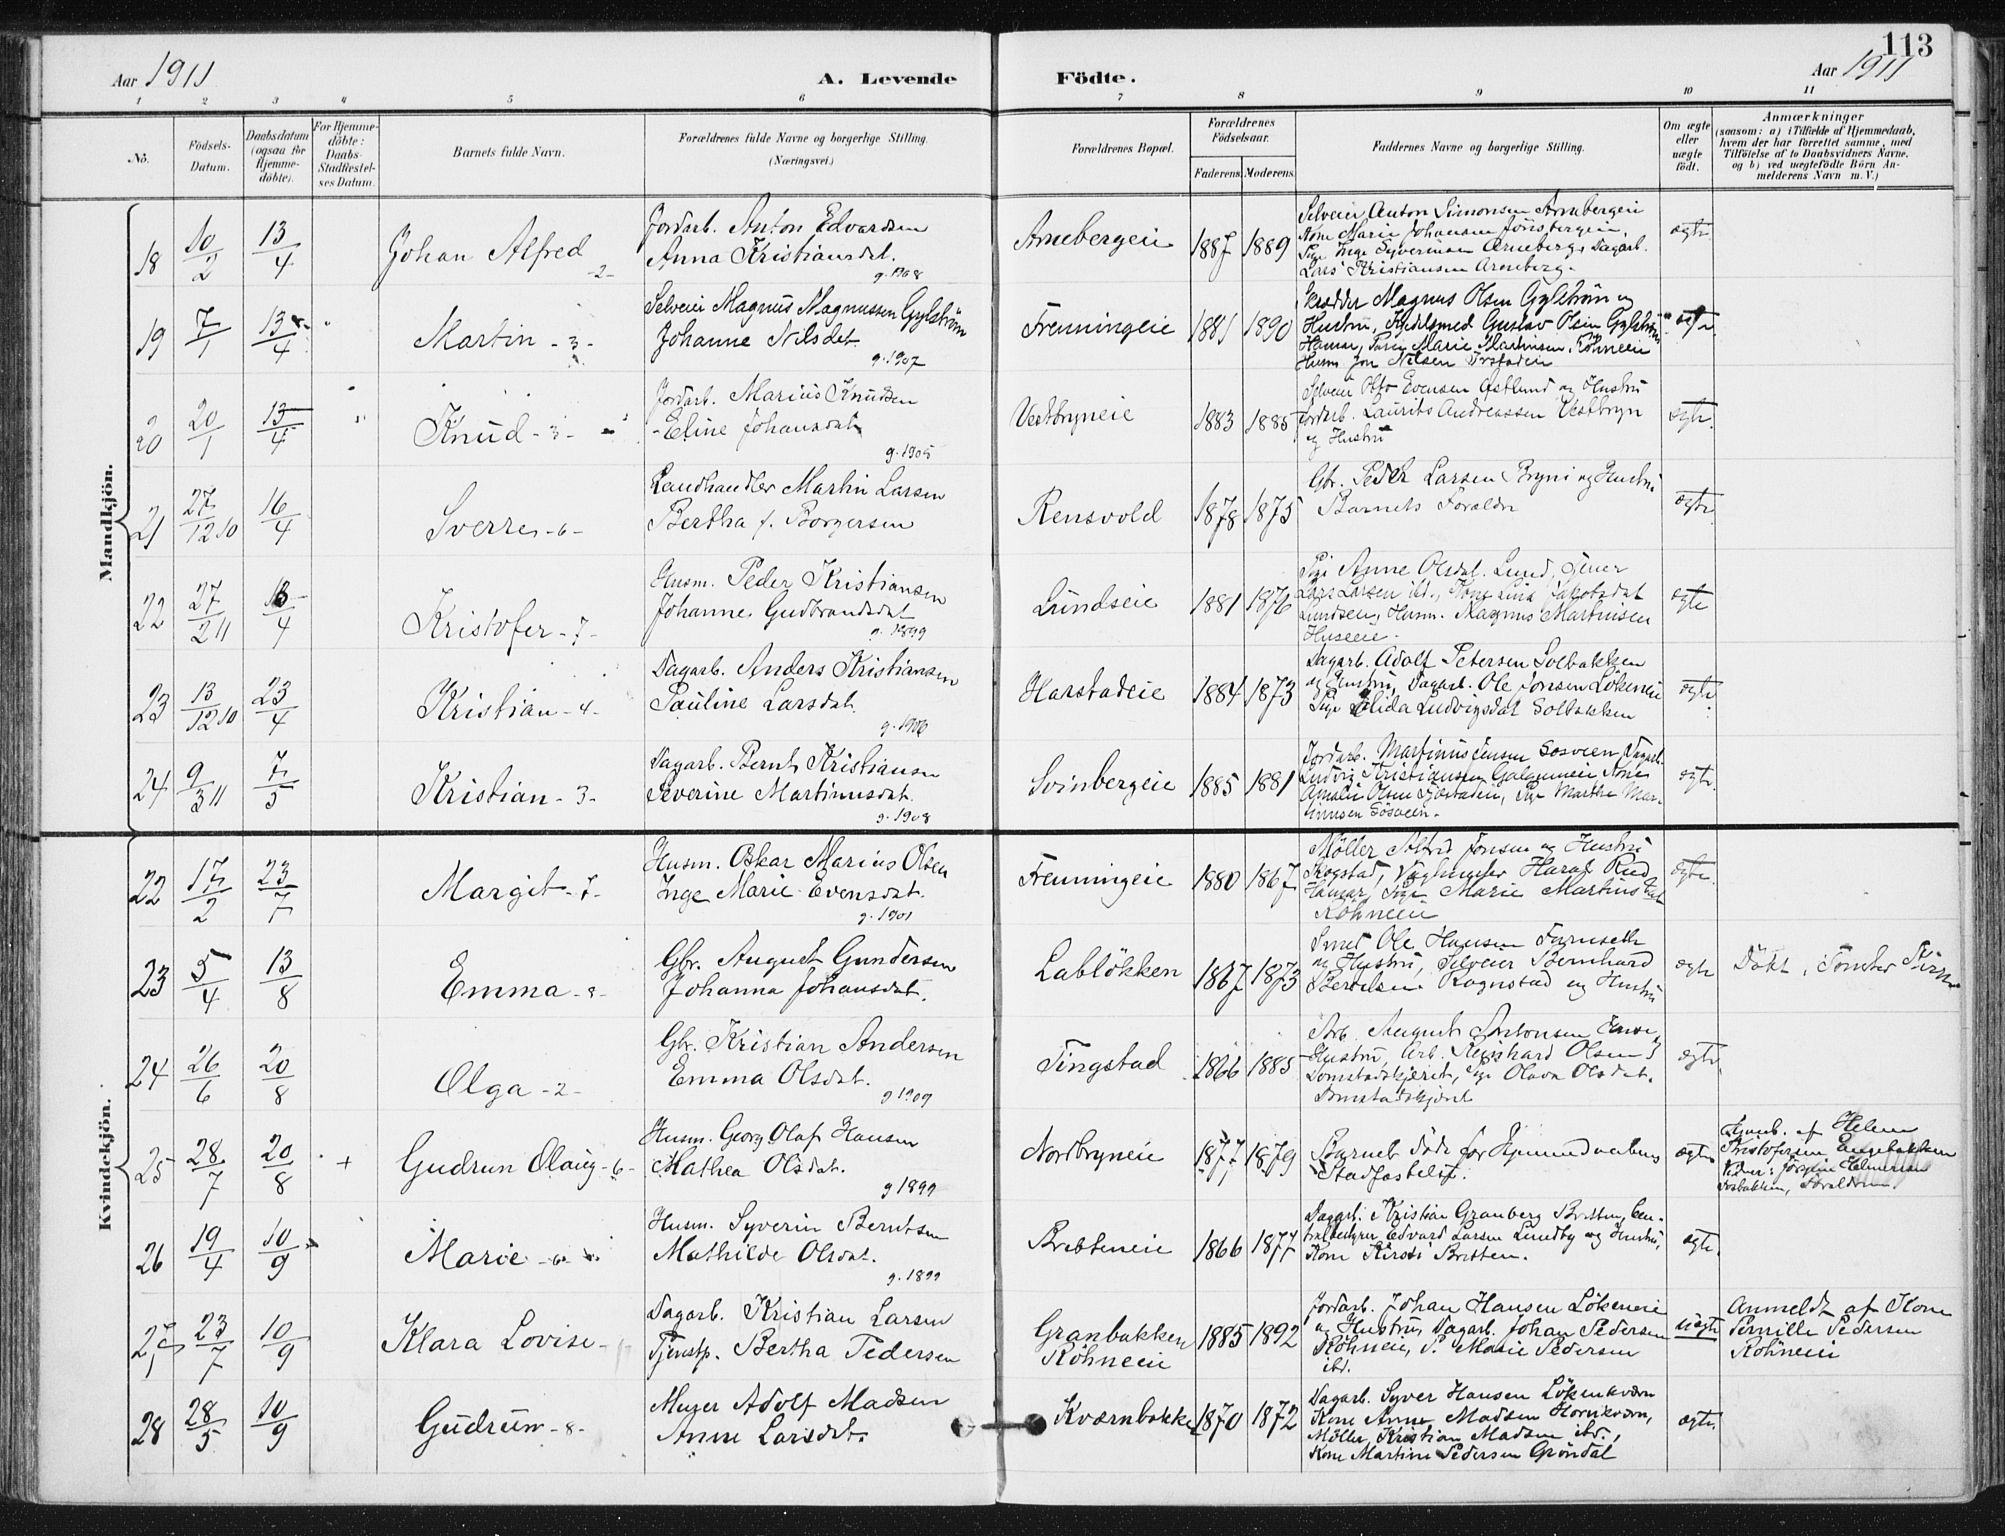 113
Aar 1911
A. Levende
Födte.
Aar 1911
1 2 3 4 5 6 7 8 9 10 11
No.
Födsels-
Datum.
Daabsdatum
(ogsaa for
Hjemme-
döbte).
For Hjemme-
döbte:
Daabs-
Stadfæstel-
ses Datum.
Barnets fulde Navn.
Forældrenes fulde Navne og borgerlige Stilling.
(Næringsvei.)
Forældrenes Bopæl.
Forældrenes
Födselsaar.
Faderens. Moderens.
Faddernes Navne og borgerlige Stilling.
Om ægte
eller
uægte
födt.
Anmærkninger
(saasom: a) i Tilfælde af Hjemmedaab,
hvem der har forrettet samme, med
Tilföielse af to Daabsvidners Navne.
og b) ved uægtefödte Börn An-
melderens Navn m. V.)
Mandkjön.
18 10/2 13/4 Johan Alfred -2-
Jordarb. Anton Edvardsen
Anna Kristiansdat.
g. 1908
Arnebergeie 1887 1889
Selveier Anton Simonsen Arnebergeie
Kone Marie Johansen
Pige Inge Syverinsen Arneberg, Dagarb.
Lars Kristiansen Arneberg.
ægte
19 7/1 13/4 Martin -3-
Selveier Magnus Magnussen Gylström
Johanne Nilsdat.
g. 1907
Frenningeie 1881 1890
Skrædder Magnus Olsen Gylström og
Hustru, Gustav Olsen Gylström
Hamar, Pige Marie Martinsen, Röhneeie
Husm. Jon Nilsen
ægte.
20 20/1 13/4 Knud -3-
Jordarb. Marius Knudsen
Eline Johansdat.
g. 1905
Vestbryneie 1883 1885
Selveier Otto Evensen Östlund og Hustru
Jordarb. Laurits Andreassen Vestbryn
og Hustru
ægte.
21 27/12 10 16/4 Sverre -6-
Landhandler Martin Larsen
Bertha f. Borgersen
Rensvold 1878 1875
Gbr. Peder Larsen Bryni og Hustru
Barnets Foraldre
ægte
22 27/2 11 /4 Kristofer -7-
Husm. Peder Kristiansen
Johanne Gudbrandsdat
g. 1899
Lundseie 1881 1876
Pige Anne Olsdat. Lund,
Lars Larsen ibd.,
Husm. Magnus Martinsen
Huseeie.
ægte
23 13/12 10 23/4 Kristian -4-
Dagarb. Anders Kristiansen
Pauline Larsdat.
g. 1906
Harstadeie 1884 1873
Dagarb. Adolf Petersen Solbakken
og Hustru, Dagarb. Ole Jonsen Lökeneie
Pige Alida Ludvigsdat Solbakken
ægte
24 9/3 11 7/5 Kristian -3-
Dagarb. Bernt Kristiansen
Severine Martinusdat.
g. 1908
Svinbergeie 1885 1881
Jordarb. Martinus Jensen Sosveen, Dagarb.
Ludvig Kristiansen Kone
Amalie Olsen Pige Marthe Mar-
tinusen Sösveen.
ægte.
Kvindekjön.
22 17/2 23/7 Margit -7-
Husm. Oskar Marius Olsen
Inge Marie Evensdat.
g. 1901
Frenningeie 1880 1867
Möller Alfred Jonsen og Hustru
Skogstad, Haral Rud
Hamar, Pige Marie Martinsdat
Röhneeie
ægte.
23 5/4 13/8 Emma -8-
Gbr. August Gundersen
Johanna Johansdat.
Lablökken 1867 1873
Smed Ole Hansen Farmseth
og Hustru, Selveier Bernhard
Bertelsen Rognstad og Hustru
ægte
Döbt i Tomter Kirke
24 26/6 20/8 Olga -2-
Gbr. Kristian Andersen
Emma Olsdat.
g 1909
Tingstad 1866 1885
Arb. August Antonsen
Hustru, Arb. Reinhard Olsen
Domstadkjernet, Pige Olava Olsdat.
ægte.
25 28/7 20/8 + Gudrun Olaug -6-
Husm. Georg Olaf Hansen
Mathea Olsdat.
g 1899
Nordbryneie 1877 1879
Barnet döde för Hjemmedaabens
Stadfæstelse.
ægte
Hjemd. af Helene
Kristofersen
Vidner: Jörgine Helmersen
Foraldrene.
26 19/4 10/9 Marie -6-
Husm. Syverin Berntsen
Mathilde Olsdat.
g. 1899
Britteneie 1866 1877
Dagarb. Kristian Granberg Britten,
Edvard Larsen Lundby og Hustru,
Kone Kirsti Britten.
ægte.
27 23/7 10/9 Klara Lovise
Dagarb. Kristian Larsen
Tjenstp. Bertha Pedersen
Granbakken
Röhneeie 1885 1892
Jordarb. Johan Hansen Lökeneie
og Hustru, Dagarb. Johan Pedersen
Röhneeie, P. Marie Pedersen
ibd.
uægte
Anmeldt af Kone
Pernille Pedersen
Röhneeie
28 28/5 10/9 Gudrun -8-
Murer Adolf Madsen
Anne Larsdat.
Kværnbakken 1870 1872
Dagarb. Syver Hansen Lökenkværn
Kone Anne Madsen Hornkværn,
Möller Kristian Madsen ibd.,
Kone Martine Pedersen Gröndal
ægte.